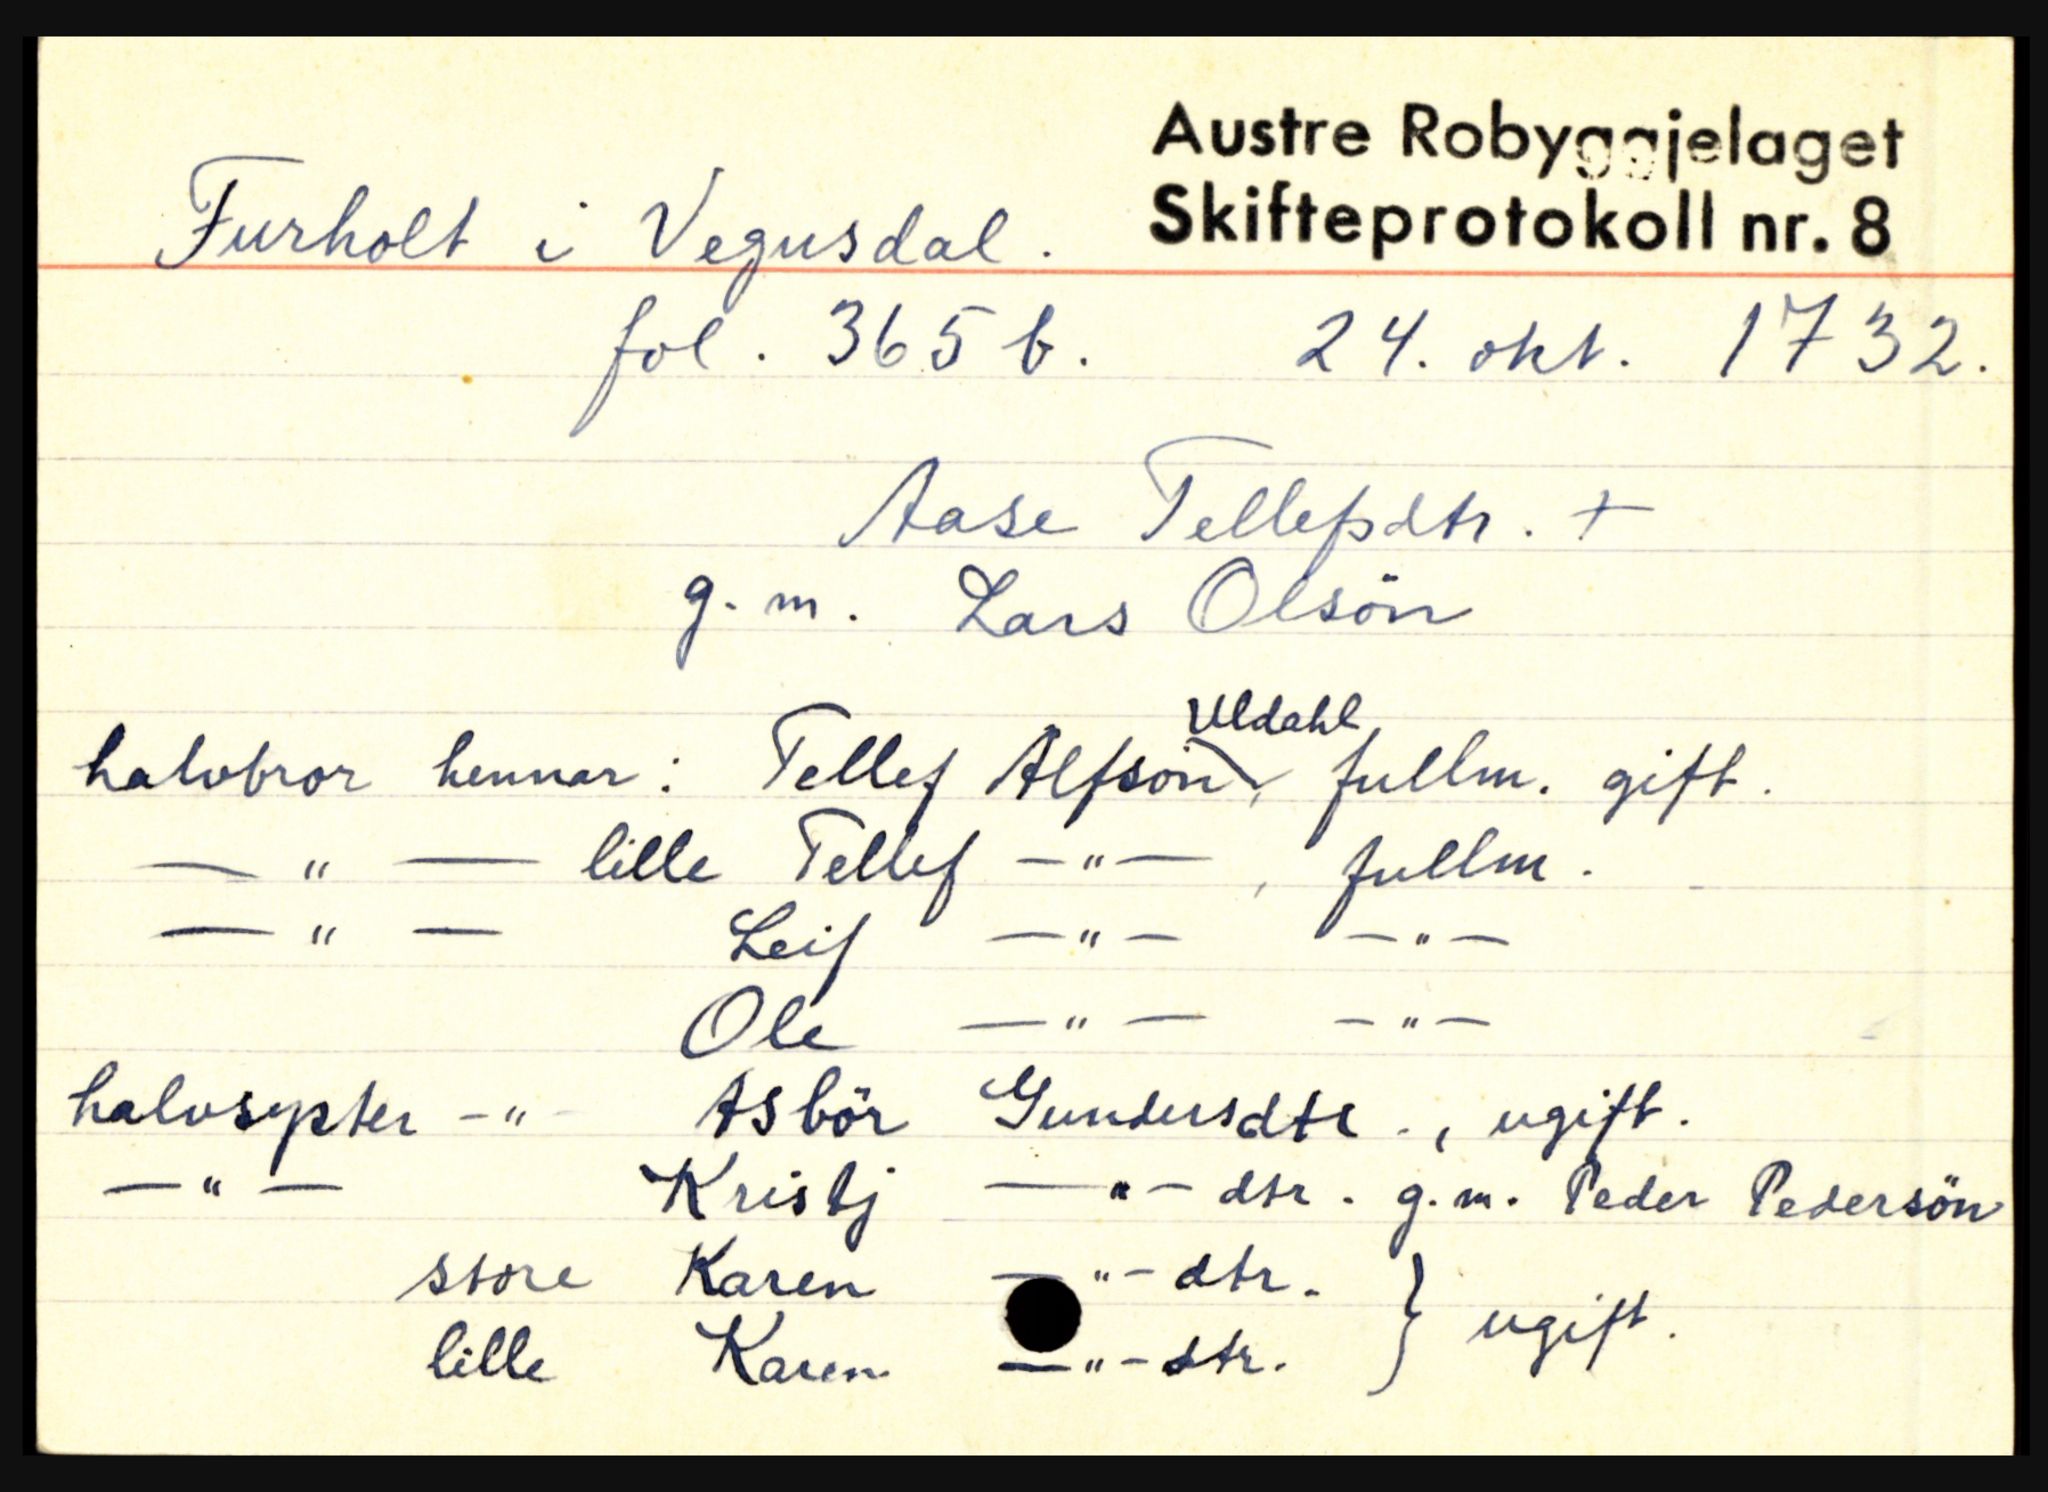 Austre Robyggjelaget
Skifteprotokoll nr. 8
Furholt i Vegusdal.
fol. 365 b. 24. okt. 1732.
Aase Tellefsdtr. +
g. m. Lars Olsön
Uldahl
halvbror hennar: Tellef Alfson, fullm. gift.
— " — lille Tellef — " — , fullm.
— " — Leif — " — — " —
Ole — " — — " —
halvsyster — " — Asbör Gundersdtr., ugift.
— " — Kristj — " — dtr. g. m. Peder Pedersön
store Karen — " — dtr. } ugift.
lille Karen — " — dtr.